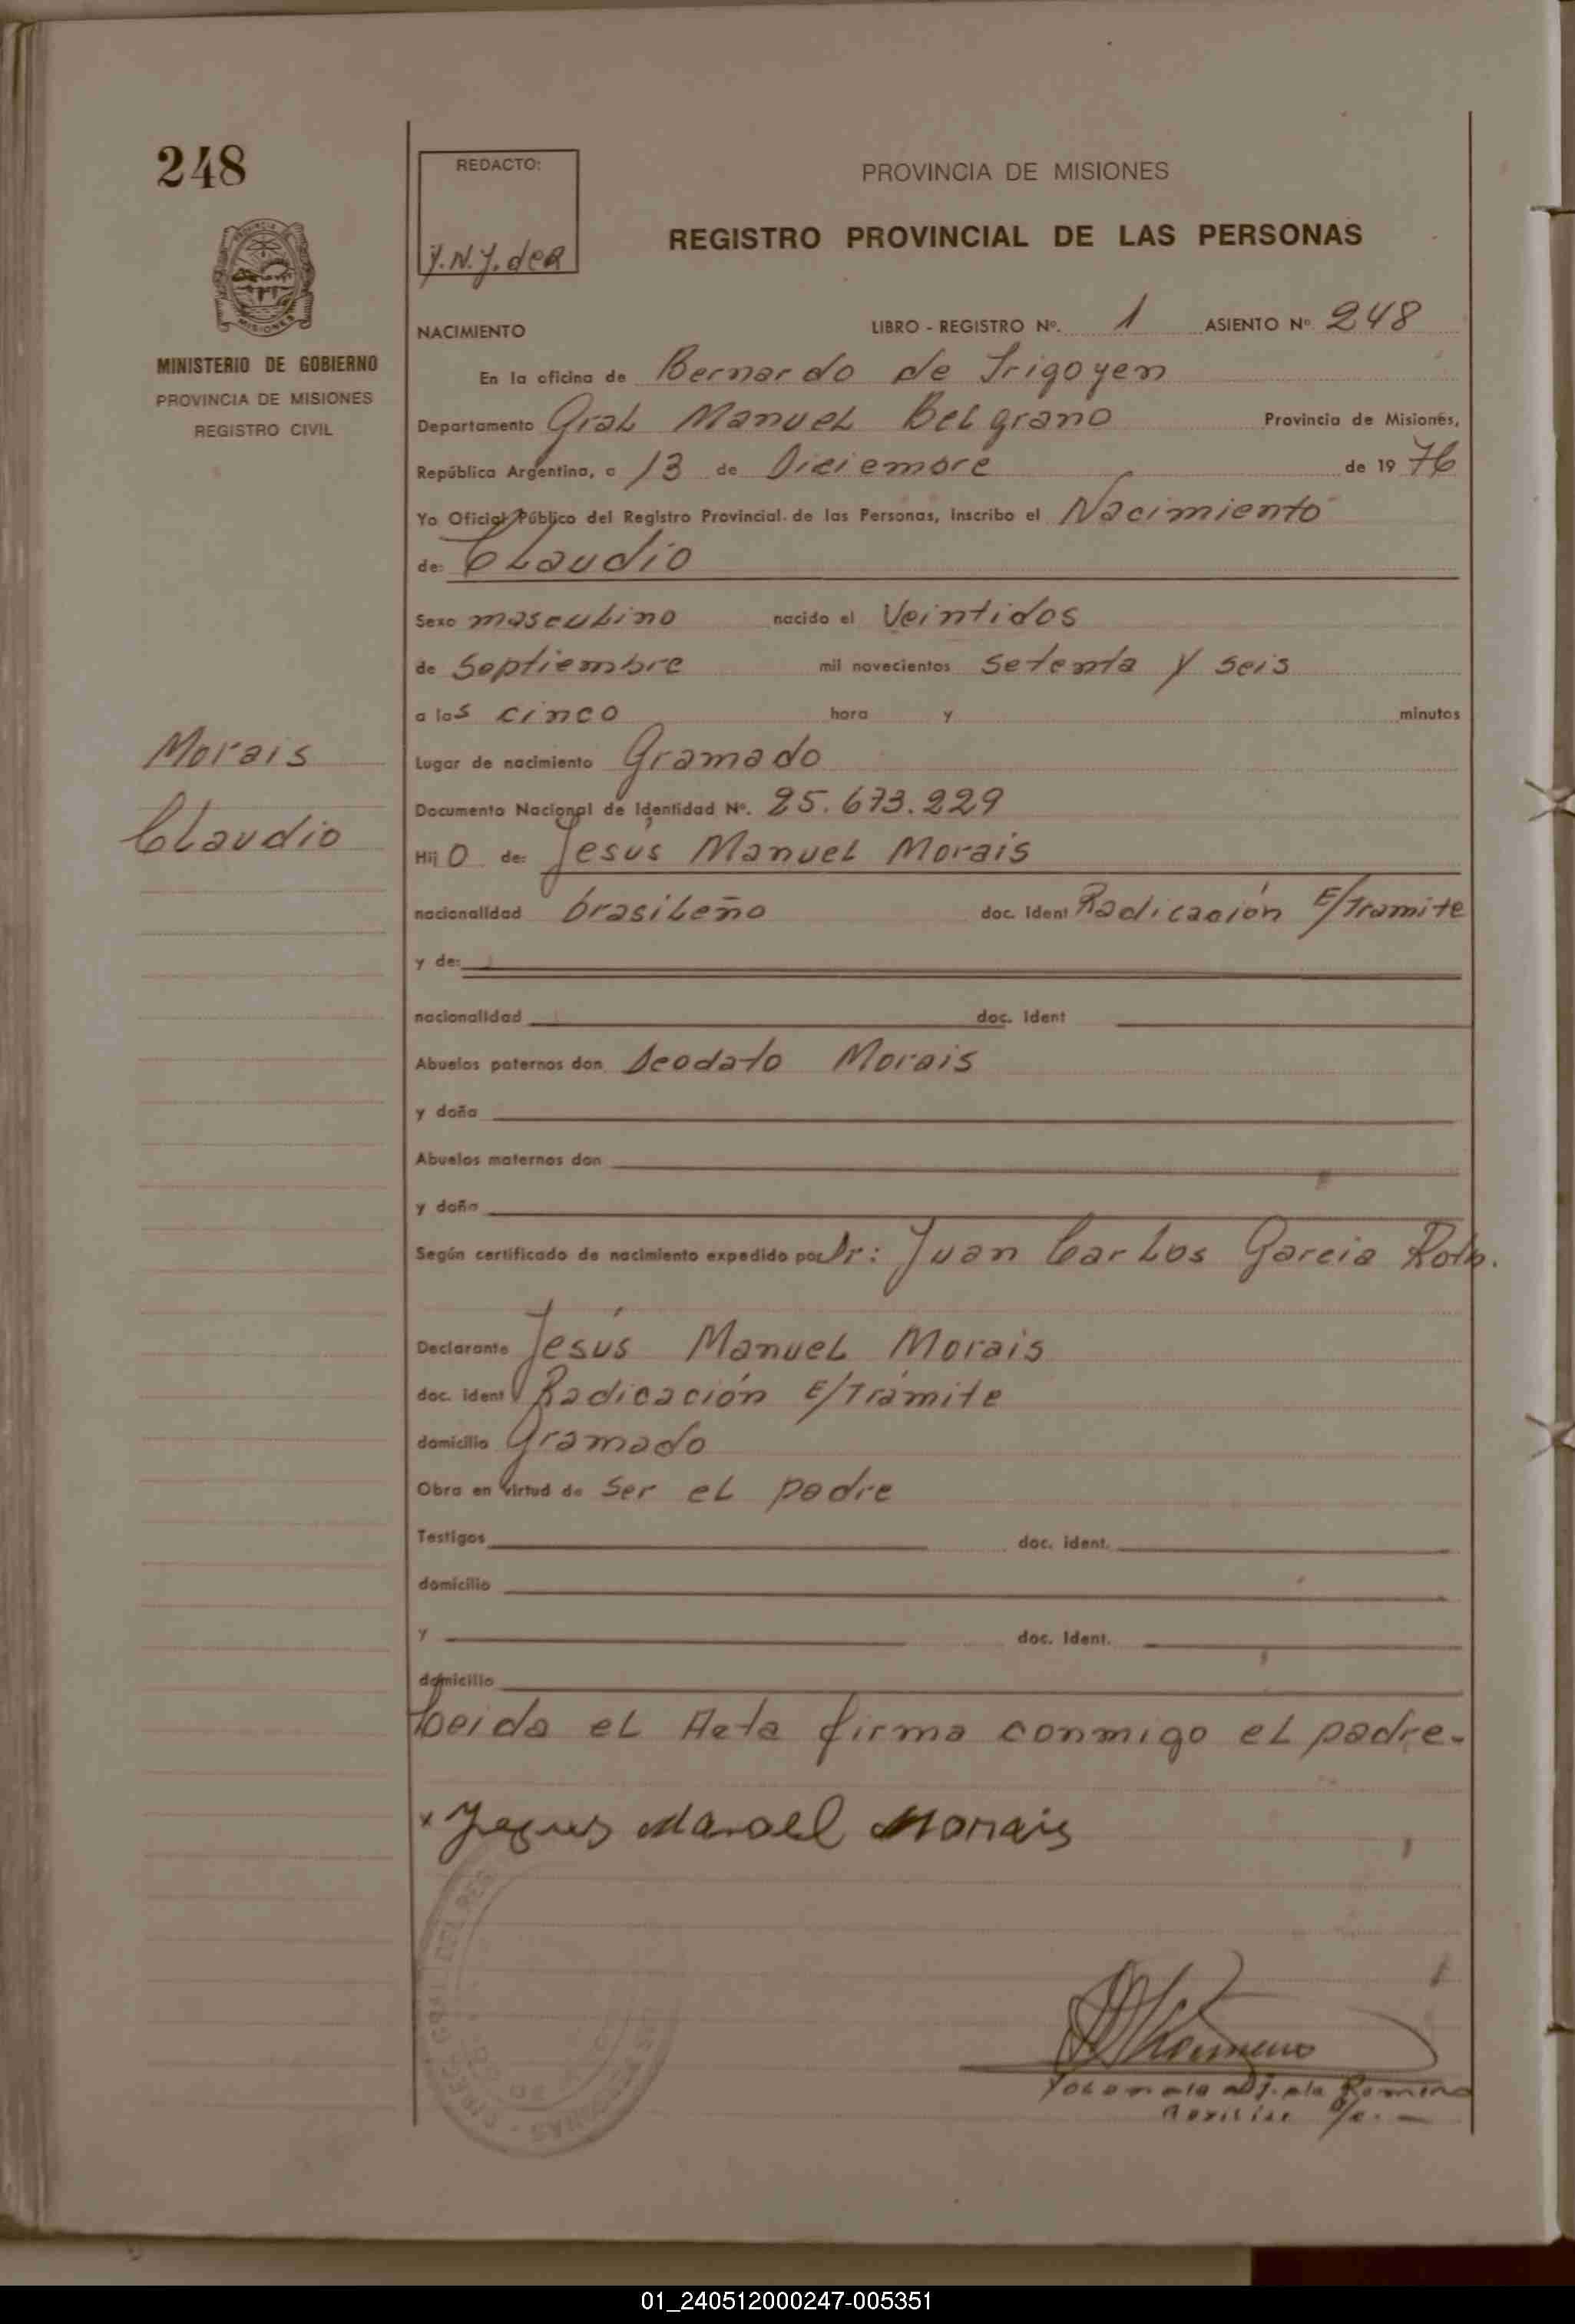 248
REDACTO:
Y.N.J. de R
PROVINCIA DE MISIONES
REGISTRO PROVINCIAL DE LAS PERSONAS
MISIONES
MINISTERIO DE GOBIERNO
PROVINCIA DE MISIONES
REGISTRO CIVIL
NACIMIENTO LIBRO - REGISTRO Nº. 1 ASIENTO Nº 248
En la oficina de Bernardo de Irigoyen
Departamento Gral Manuel Belgrano Provincia de Misiones,
República Argentina, a 13 de Diciembre de 19 76
Yo Oficial Público del Registro Provincial de las Personas, inscribo el Nacimiento
de: Claudio
Sexo masculino nacido el Veintidos
de Septiembre mil novecientos setenta y seis
a las cinco hora y minutos
Morais
Claudio
Lugar de nacimiento Gramado
Documento Nacional de Identidad Nº. 25.673.229
Hij o de: Jesús Manuel Morais
nacionalidad brasileño doc. Ident Radicación E/Tramite
y de:
nacionalidad doc. Ident
Abuelos paternos don Deodato Morais
y doña
Abuelos maternos don
y doña
Según certificado de nacimiento expedido por Dr: Juan Carlos Garcia Roth.
Declarante Jesús Manuel Morais
doc. ident Radicación E/Trámite
domicilio Gramado
Obra en virtud de ser el padre
Testigos doc. ident.
domicilio
y doc. Ident.
domicilio
Leida el Acta firma conmigo el padre.
x Jesus Manoel Morais
Romero
Auxiliar
01_240512000247-005351